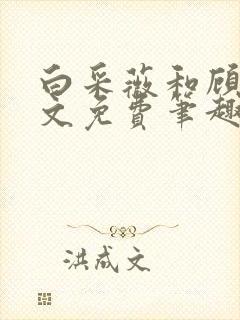 白采薇和顾
文免费笔趣
洪成文